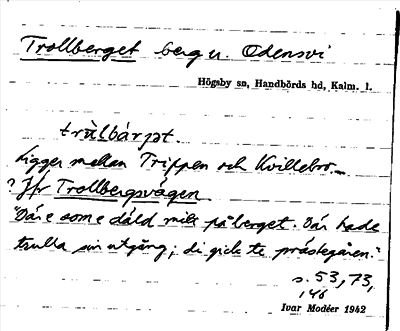 Trollberget berg u. Odensvi
Högsby sn, Handbörds hd, Kalm. l.
trùlbárjət.
Ligger mellan Trippen och Kvillebro.
? Jfr Trollbergsvägen
"Där e som e däld mitt på berget. Där hade
trulla sin utgång; di gick te prästegåren."
s. 53, 73,
146
Ivar Modéer 1942